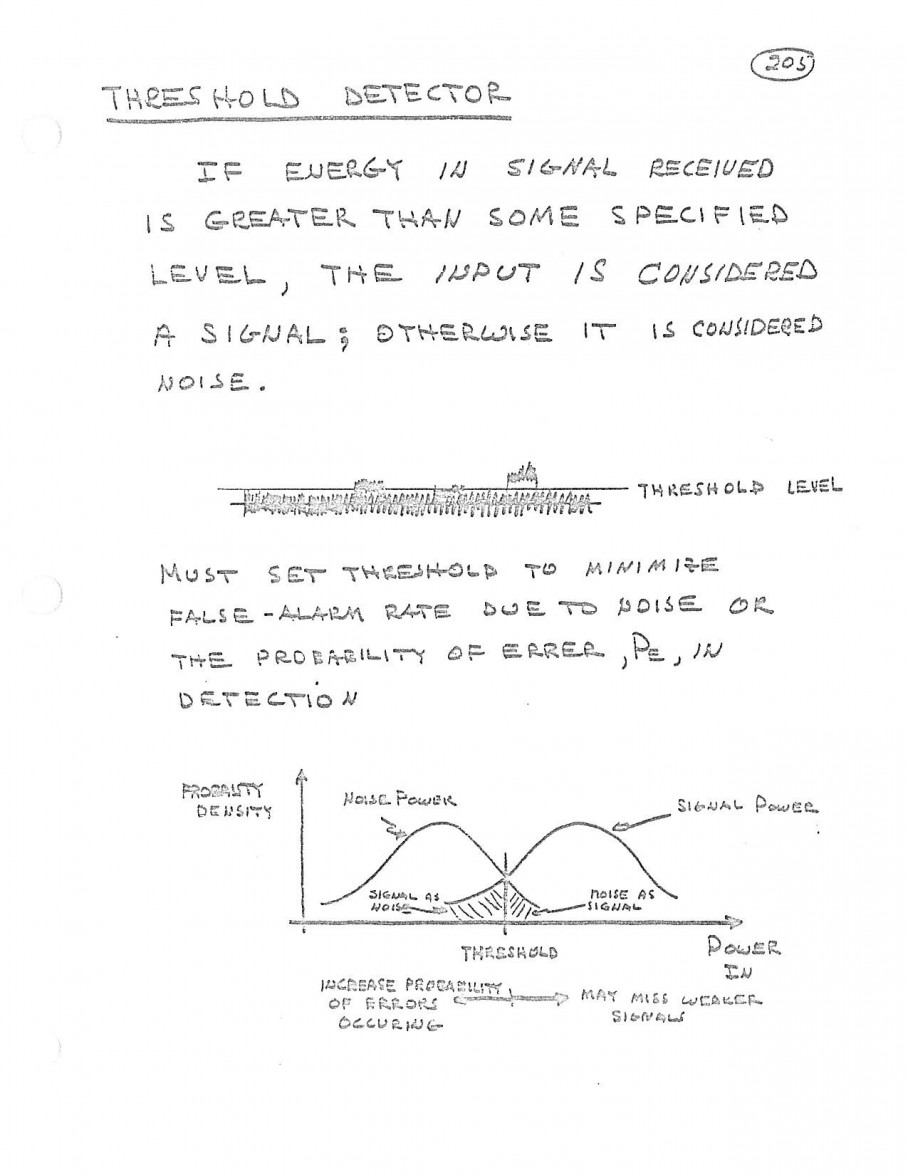 205
THRESHOLD DETECTOR
IF ENERGY IN SIGNAL RECEIVED
IS GREATER THAN SOME SPECIFIED
LEVEL, THE INPUT IS CONSIDERED
A SIGNAL; OTHERWISE IT IS CONSIDERED
NOISE.
THRESHOLD LEVEL
MUST SET THRESHOLD TO MINIMIZE
FALSE-ALARM RATE DUE TO NOISE OR
THE PROBABILITY OF ERRER, PE, IN
DETECTION
PROBALITY
DENSITY
NOISE POWER
SIGNAL POWER
SIGNAL AS
NOISE
NOISE AS
SIGNAL
THRESHOLD
POWER
IN
INCREASE PROBABILITY
OF ERRORS
OCCURING
MAY MISS WEAKER
SIGNALS